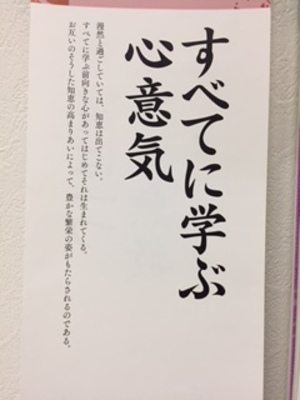 すべてに学ぶ
心意気
漫然と過ごしていては、知恵は出てこない。
すべてに学ぶ前向きな心があってはじめてそれは生まれてくる。
お互いのそうした知恵の高まりあいによって、豊かな繁栄の姿がもたらされるのである。